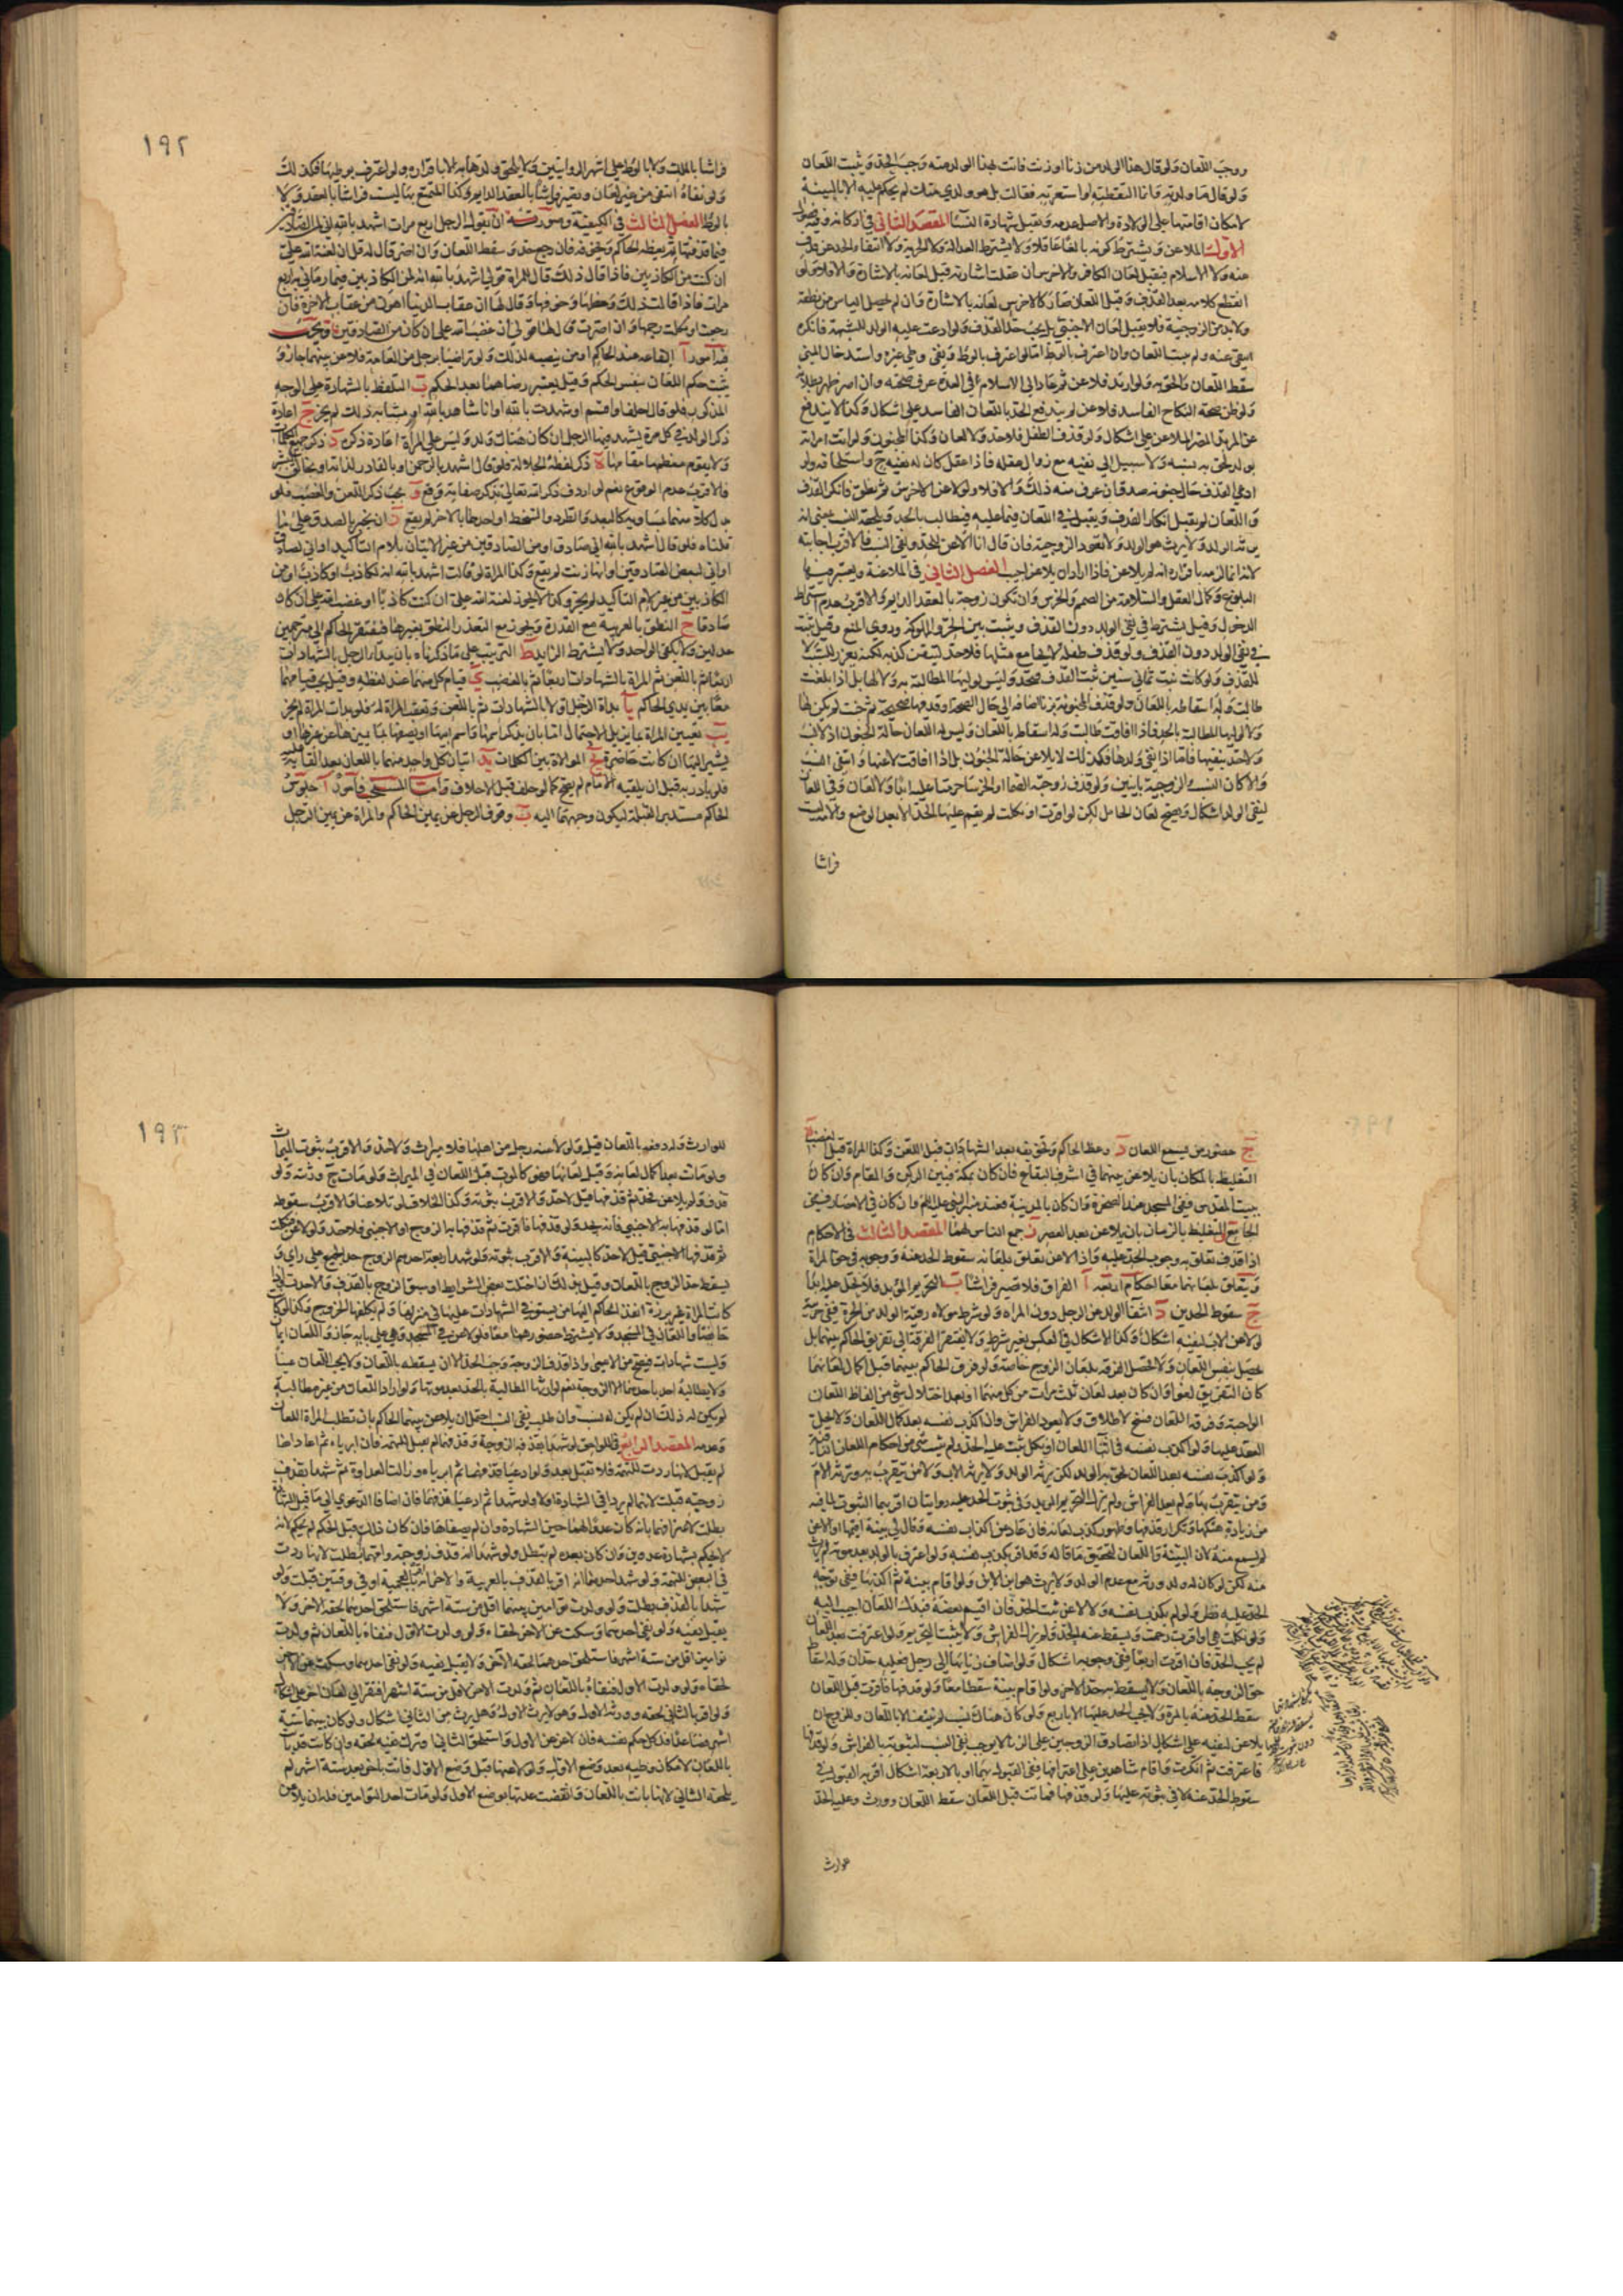 ووجب اللعان ولو قال هذا الولد من زنا او زنت فاتت بهذا الولد منه وجب الحد ويثبت اللعان
ولو قال ما ولدته وانما التقطته او استعرته فقالت بل هو ولدي منك لم يحكم عليه الا بالبينة
لامكان اقامتها على الولادة والاصل عدمه وتقبل شهادة النساء المقصد الثاني في اركانه وفيه فصول
الاول الملاعن ويشترط كونه بالغا عاقلا ولا يشترط العدالة ولا الحرية ولا انتفاء الحد عن قذف
عنه ولا الاسلام فيقبل لعان الكافر والاخرس ان عقلت اشارته قبل لعانه بالاشارة والا فلا ولو
انقطع كلامه بعد القذف وقبل اللعان صار كالاخرس لعانه بالاشارة وان لم يحصل الياس من نطقه
ولا بد من الزوجية فلا يقبل لعان الاجنبي بل يجب حد القذف ولو ادعت عليه الولد للشبهة فانكره
انتفى عنه ولم يثبت اللعان وان اعترف بالوطء اما لو اعترف بالوطء ونفى وطى غيره واستدخال المني
سقط اللعان والحق به ولو ارتد فلاعن ثم عاد الى الاسلام في العدة عرف صحته وان اصر ظهر بطلانه
ولو ظن صحة النكاح الفاسد فلاعن لم يندفع الحد باللعان الفاسد على اشكال وكذا لا يندفع
عن المرتد المصر الملاعن على اشكال ولو قذف الطفل فلا حد ولا لعان وكذا المجنون ولو اتت امراته
بولد لحق به نسبه ولا سبيل الى نفيه مع زوال عقله فاذا عقل كان له نفيه ح واستلحاقه ولو
ادعى القذف حال جنونه صدق ان عرف منه ذلك والا فلا ولو لاعن الاخرس ثم نطق فانكر القذف
واللعان لم يقبل انكار القذف ويقبل في اللعان فيما عليه فيطالب بالحد ويلحقه النسب بمعنى انه
يرثه الولد ولا يرث هو الولد ولا تعود الزوجية فان قال انا الاعن للحد ونفي النسب فالاقرب اجابته
لانه انما لزمه باقراره انه لم يلاعن فاذا اراد ان يلاعن اجيب الفصل الثاني في الملاعنة ويعتبر فيها
البلوغ وكمال العقل والسلامة من الصمم والخرس وان تكون زوجة بالعقد الدايم والاقرب عدم اشتراط
الدخول وقيل يشترط في نفي الولد دون القذف ويثبت بين الحر والمملوكة وروي المنع وقيل يثبت
في نفي الولد دون القذف ولو قذف طفلة لا يجامع مثلها فلا حد لتيقن كذبه لكنه يعزر للسب لا
للقذف ولو كانت بنت ثماني سنين ثبت القذف فيحد وليس لوليها المطالبة به ولا لها بل اذا بلغت
طالبت وله اسقاطه باللعان ولو قذف المجنونة بزنا اضافه الى حال الصحة او قذفها صحيحة ثم جنت لم يكن لها
ولا لوليها المطالبة بالحد فاذا افاقت طالبت وله اسقاطه باللعان وليس له اللعان حالة الجنون اذ لا نسب
ولا حد ينفيها فاما اذا نفى ولدها فكذلك لا يلاعن حالة الجنون بل اذا افاقت لاعنها وانتفى النسب
والا كان النسب والزوجية باقيين ولو قذف زوجته الصماء او الخرساء حرمتا عليه ابدا ولا لعان وفي اللعان
لنفي الولد اشكال ويصح لعان الحامل لكن لو اقرت او نكلت لم يقم عليها الحد الا بعد الوضع والامة ليست
فراشا
١٩٢
فراشا بالملك ولا بالوطء على اشهر الروايتين ولا يلحق ولدها به الا باقراره ولو اعترف بوطيها فكذلك
ولو نفاه انتفى من غير لعان وتصير فراشا بالعقد الدايم وكذا المتمتع بها ليست فراشا بالعقد ولا
بالوطء الفصل الثالث في الكيفية وصورته ان يقول الرجل اربع مرات اشهد بالله اني لمن الصادقين
فيما قذفتها ثم يعظه الحاكم ويخوفه فان رجع حد وسقط اللعان وان اصر قال له قل ان لعنة الله علي
ان كنت من الكاذبين فاذا قال ذلك قال للمراة قولي اشهد بالله انه لمن الكاذبين فيما رماني به اربع
مرات فاذا قالت ذلك وعظها وخوفها وقال لها ان عقاب الدنيا اهون من عقاب الاخرة فان
رجعت او نكلت رجمها وان اصرت قال لها قولي ان غضب الله علي ان كان من الصادقين ويجب
فيه امور آ ايقاعه عند الحاكم او من ينصبه لذلك ولو تراضيا برجل من العامة فلاعن بينهما جاز و
يثبت حكم اللعان بنفس الحكم وقيل يعتبر رضاهما بعد الحكم ب التلفظ بالشهادة على الوجه
المذكور فلو قال احلف او اقسم او شهدت بالله او انا شاهد بالله او ما شابه ذلك لم يجز ج اعادة
ذكر الولد في كل مرة يشهد فيها الرجل ان كان هناك ولد وليس على المراة اعادة ذكره د ذكر جميع الكلمات
ولا يقوم معظمها مقامها ه ذكر لفظة الجلالة فلو قال اشهد بالرحمن او بالقادر لذاته او بخالق البشر
فالاقرب عدم الوقوع نعم لو اردف ذكر الله تعالى بذكر صفاته وقع و يجب ذكر اللعن والغضب فلو
بدل كلا منهما بمساويه كالبعد والطرد والسخط او احدهما بالاخر لم يقع ز ان يخبر بالصدق على ما
قلناه فلو قال اشهد بالله اني صادق او من الصادقين من غير الاتيان بلام التاكيد او اني لصادق
او اني لبعض الصادقين او انها زنت لم يقع وكذا المراة لو قالت اشهد بالله انه لكاذب او كاذب او من
الكاذبين من غير لام التاكيد لم يجز وكذا لا يجوز لعنة الله علي ان كنت كاذبا او غضب الله علي ان كان
صادقا ح النطق بالعربية مع القدرة ويجوز مع التعذر النطق بغيرها فيفتقر الحاكم الى مترجمين
عدلين ولا يكفي الواحد ولا يشترط الزايد ط الترتيب على ما ذكرناه بان يبدا الرجل بالشهادات
اربعا ثم باللعن ثم المراة بالشهادات اربعا ثم بالغضب ي قيام كل منهما عند لفظه وقيل يجب قيامهما
معا بين يدي الحاكم يا بداة الرجل اولا بالشهادات ثم باللعن وتعقب المراة له فلو بدات المراة لم يجز
يب تعيين المراة بما يزيل الاحتمال اما بان يذكر اسمها واسم ابيها او يصفها بما يبينها عن غيرها او
يشير اليها ان كانت حاضرة يج الموالاة بين الكلمات يد اتيان كل واحد منهما باللعان بعد القائه عليه
فلو بادر به قبل ان يلقيه الامام لم يصح كما لو حلف قبل الاحلاف واما المستحب فامور آ جلوس
الحاكم مستدبر القبلة ليكون وجههما اليه ب وقوف الرجل عن يمين الحاكم والمراة عن يمين الرجل
ج حضور من يسمع اللعان د وعظ الحاكم وتخويفه بعد الشهادات قبل اللعن وكذا المراة قبل الغضب ه
التغليظ بالمكان بان يلاعن بينهما في اشرف البقاع فان كان بمكة فبين الركن والمقام وان كان
ببيت المقدس ففي المسجد عند الصخرة وان كان بالمدينة فعند منبر النبي عليه السلام وان كان في الامصار ففي
الجامع و التغليظ بالزمان بان يلاعن بعد العصر ز جمع الناس لهما المقصد الثالث في الاحكام
اذا قذف تعلق به وجوب الحد عليه واذا لاعن تعلق بلعانه سقوط الحد عنه ووجوبه في حق المراة
ويتعلق بلعانهما معا احكام اربعة آ الفراق فلا تصير فراشا ب التحريم المؤبد فلا تحل عليه ابدا
ج سقوط الحدين د انتفاء الولد عن الرجل دون المراة ولو شرط مولاه رقية الولد من الحرة ففي حريته
لو لاعن الاب لنفيه اشكال وكذا الاشكال في العكس بغير شرط ولا يفتقر الفرقة الى تفريق الحاكم بينهما بل
يحصل بنفس اللعان ولا تحصل الفرقة بلعان الزوج خاصة ولو فرق الحاكم بينهما قبل اكمال لعانهما
كان التفريق لغوا وان كان بعد لعان ثلث مرات من كل منهما او بعد اختلال شي من الفاظ اللعان
الواجبة وفرقة اللعان فسخ لا طلاق ولا يعود الفراش وان اكذب نفسه بعد كمال اللعان ولا يحل له
العقد عليها ولو اكذب نفسه في اثناء اللعان او نكل ثبت عليه الحد ولم يثبت شي من احكام اللعان الباقية
ولو اكذب نفسه بعد اللعان لحق به الولد لكن يرثه الولد ولا يرثه الاب ولا من يتقرب به وترثه الام
ومن يتقرب بها ولم يعد الفراش ولم يزل التحريم المؤبد وفي ثبوت الحد عليه روايتان اقربهما الثبوت لما فيه
من زيادة هتكها وتكرار قذفها وظهور كذب لعانه فان عاد عن اكذاب نفسه وقال لي بينة اقيمها او الاعن
لم يسمع منه لان البينة واللعان لتحقيق ما قاله وقد اقر بكذب نفسه ولو اعترف بالولد بعد موته لم يرث
منه لكن لو كان له ولد ورثه مع عدم الولد ولا يرث هو ابن الابن ولو اقام بينة ثم اكذبها ففي توجه
الحد عليه نظر ولو لم يكذب نفسه ولا لاعن ثبت الحد فان اقيم بعضه فبذل اللعان اجيب اليه
ولو نكلت هي او اقرت رجمت وسقط عنه الحد ولم يزل الفراش ولا يثبت التحريم ولو اعترفت بعد اللعان
لم يجب الحد فان اقرت اربعا ففي وجوبه اشكال ولو اضاف زناها الى رجل فعليه حدان وله اسقاط
حق الزوجة باللعان ولا يسقط به حد الاخر ولو اقام بينة سقطا معا ولو قذفها فاقرت قبل اللعان
سقط الحد عنه بالمرة ولا يجب الحد عليها الا باربع ولو كان هناك نسب لم ينتف الا باللعان وللزوج ان
يلاعن لنفيه على اشكال اذ تصادق الزوجين على الزنا لا يوجب نفي النسب لثبوته بالفراش ولو قذفها
فاعترفت ثم انكرت واقام شاهدين على اعترافها ففي القبول بهما او بالاربعة اشكال اقربه القبول في
سقوط الحد عنه لا في ثبوته عليها ولو قذفها فماتت قبل اللعان سقط اللعان وورث وعليه الحد
١٩٣
للوارث وله دفعه باللعان قيل ولو لاعنه رجل من اهلها فلا ميراث ولا حد والاقرب ثبوت الميراث
ولو ماتت بعد اكمال لعانه وقبل لعانها فهو كالموت قبل اللعان في الميراث ولو مات ح ورثته ولو
قذف ولم يلاعن فحد ثم قذفها قيل لا حد والاقرب ثبوته وكذا الخلاف لو تلاعنا والاقرب سقوطه
اما لو قذفها به الاجنبي فانه يحد ولو قذفها فاقرت ثم قذفها به الزوج او الاجنبي فلا حد ولو لاعن ونكلت
ثم قذفها الاجنبي قيل لا حد كالبينة والاقرب ثبوته ولو شهد اربعة احدهم الزوج حد الجميع على راي و
يسقط حد الزوج باللعان وقيل ان اختلت بعض الشرايط او سبق الزوج بالقذف والا حدت واذا
كانت المراة غير برزة انفذ الحاكم اليها من يستوفي الشهادات عليها في منزلها ولم يكلفها الخروج وكذا لو كان
حايضا واللعان في المسجد ولا يشترط حضورهما معا فلو لاعن في المسجد وهي على بابه جاز واللعان ايمان
وليست شهادات فيصح من الاعمى واذا قذف الزوجة وجب الحد الا ان يسقطه باللعان ولا يجب اللعان عينا
ولا يطالبه احد باحدهما الا الزوجة نعم لوارثها المطالبة بالحد بعد موتها ولو اراد اللعان من غير مطالبة
لم يكن له ذلك ان لم يكن له نسب وان طلب نفي النسب احتمل ان يلاعن بينهما الحاكم بان تطلب المراة اللعان
وعدمه المقصد الرابع في اللواحق لو شهدا بقذف الزوجة وقذفهما لم تقبل للتهمة فان ابرءاه ثم اعاداها
لم يقبل لانها ردت للتهمة فلا تقبل بعد ولو ادعيا قذفهما ثم ابرءاه وزالت العداوة ثم شهدا بقذف
زوجته قبلت لانهما لم يردا في الشهادة اولا ولو شهدا ثم ادعيا قذفهما فان اضافا الدعوى الى ما قبل الشهادة
بطلت لاعترافهما بانه كان عدوا لهما حين الشهادة وان لم يضيفاها فان كان ذلك قبل الحكم لم يحكم لانه
لا يحكم بشهادة عدوين وان كان بعده لم يبطل ولو شهدا انه قذف زوجته وامهما بطلت لانها ردت
في البعض للتهمة ولو شهد احدهما انه اقر بالقذف بالعربية والاخر انه اقر بالعجمية او في وقتين قبلت ولو
شهدا بالقذف بطلت ولو ولدت توامين بينهما اقل من ستة اشهر فاستلحق احدهما لحقه الاخر ولا
يقبل نفيه ولو نفى احدهما وسكت عن الاخر لحقاه ولو ولدت الاول فنفاه باللعان ثم ولدت
توامين اقل من ستة اشهر فاستلحق احدهما لحقه الاخر ولا يقبل نفيه ولو نفى احدهما وسكت عن الاخر
لحقاه ولو ولدت الاول فنفاه باللعان ثم ولدت الاخر لاقل من ستة اشهر افتقر الى لعان اخر على اشكال
ولو اقر بالثاني لحقه وورثه الاول وهو لا يرث الاول وهل يرث من الثاني اشكال ولو كان بينهما ستة
اشهر فصاعدا فلكل حكم نفسه فان لاعن عن الاول واستلحق الثاني او ترك نفيه لحقه وان كانت قد بانت
باللعان لامكان وطيه بعد وضع الاول ولو لاعنها قبل وضع الاول فاتت باخر بعد ستة اشهر لم
يلحقه الثاني لانها بانت باللعان وانقضت عدتها بوضع الاول ولو مات احد التوامين فله ان يلاعن